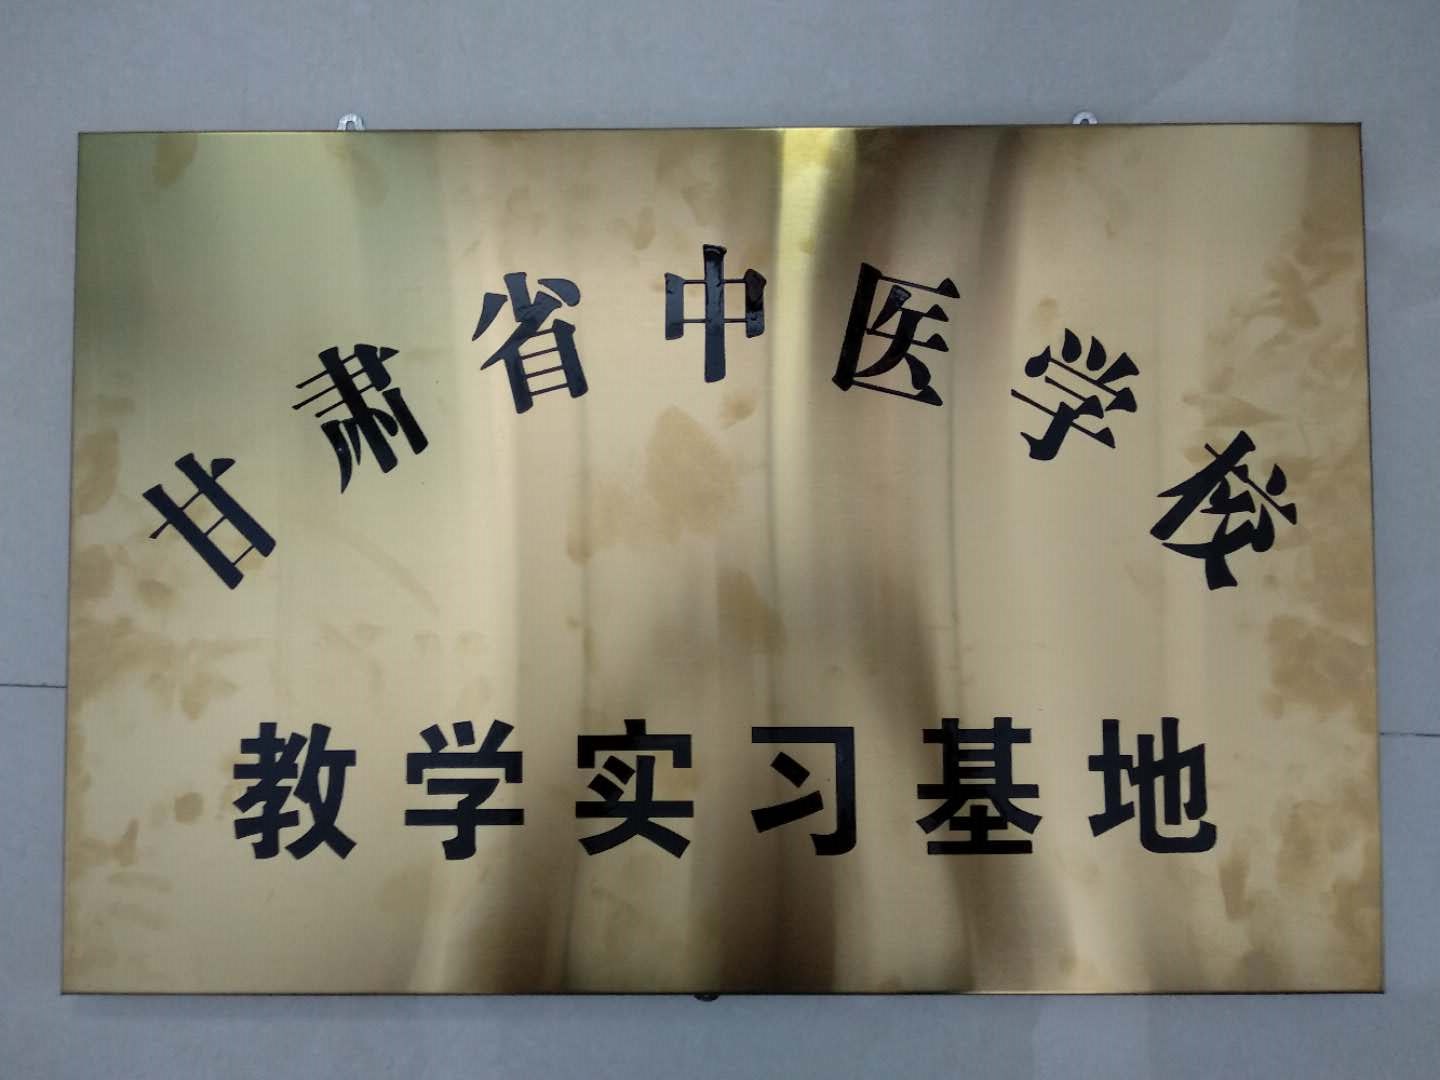 甘肃省中医学校
教学实习基地